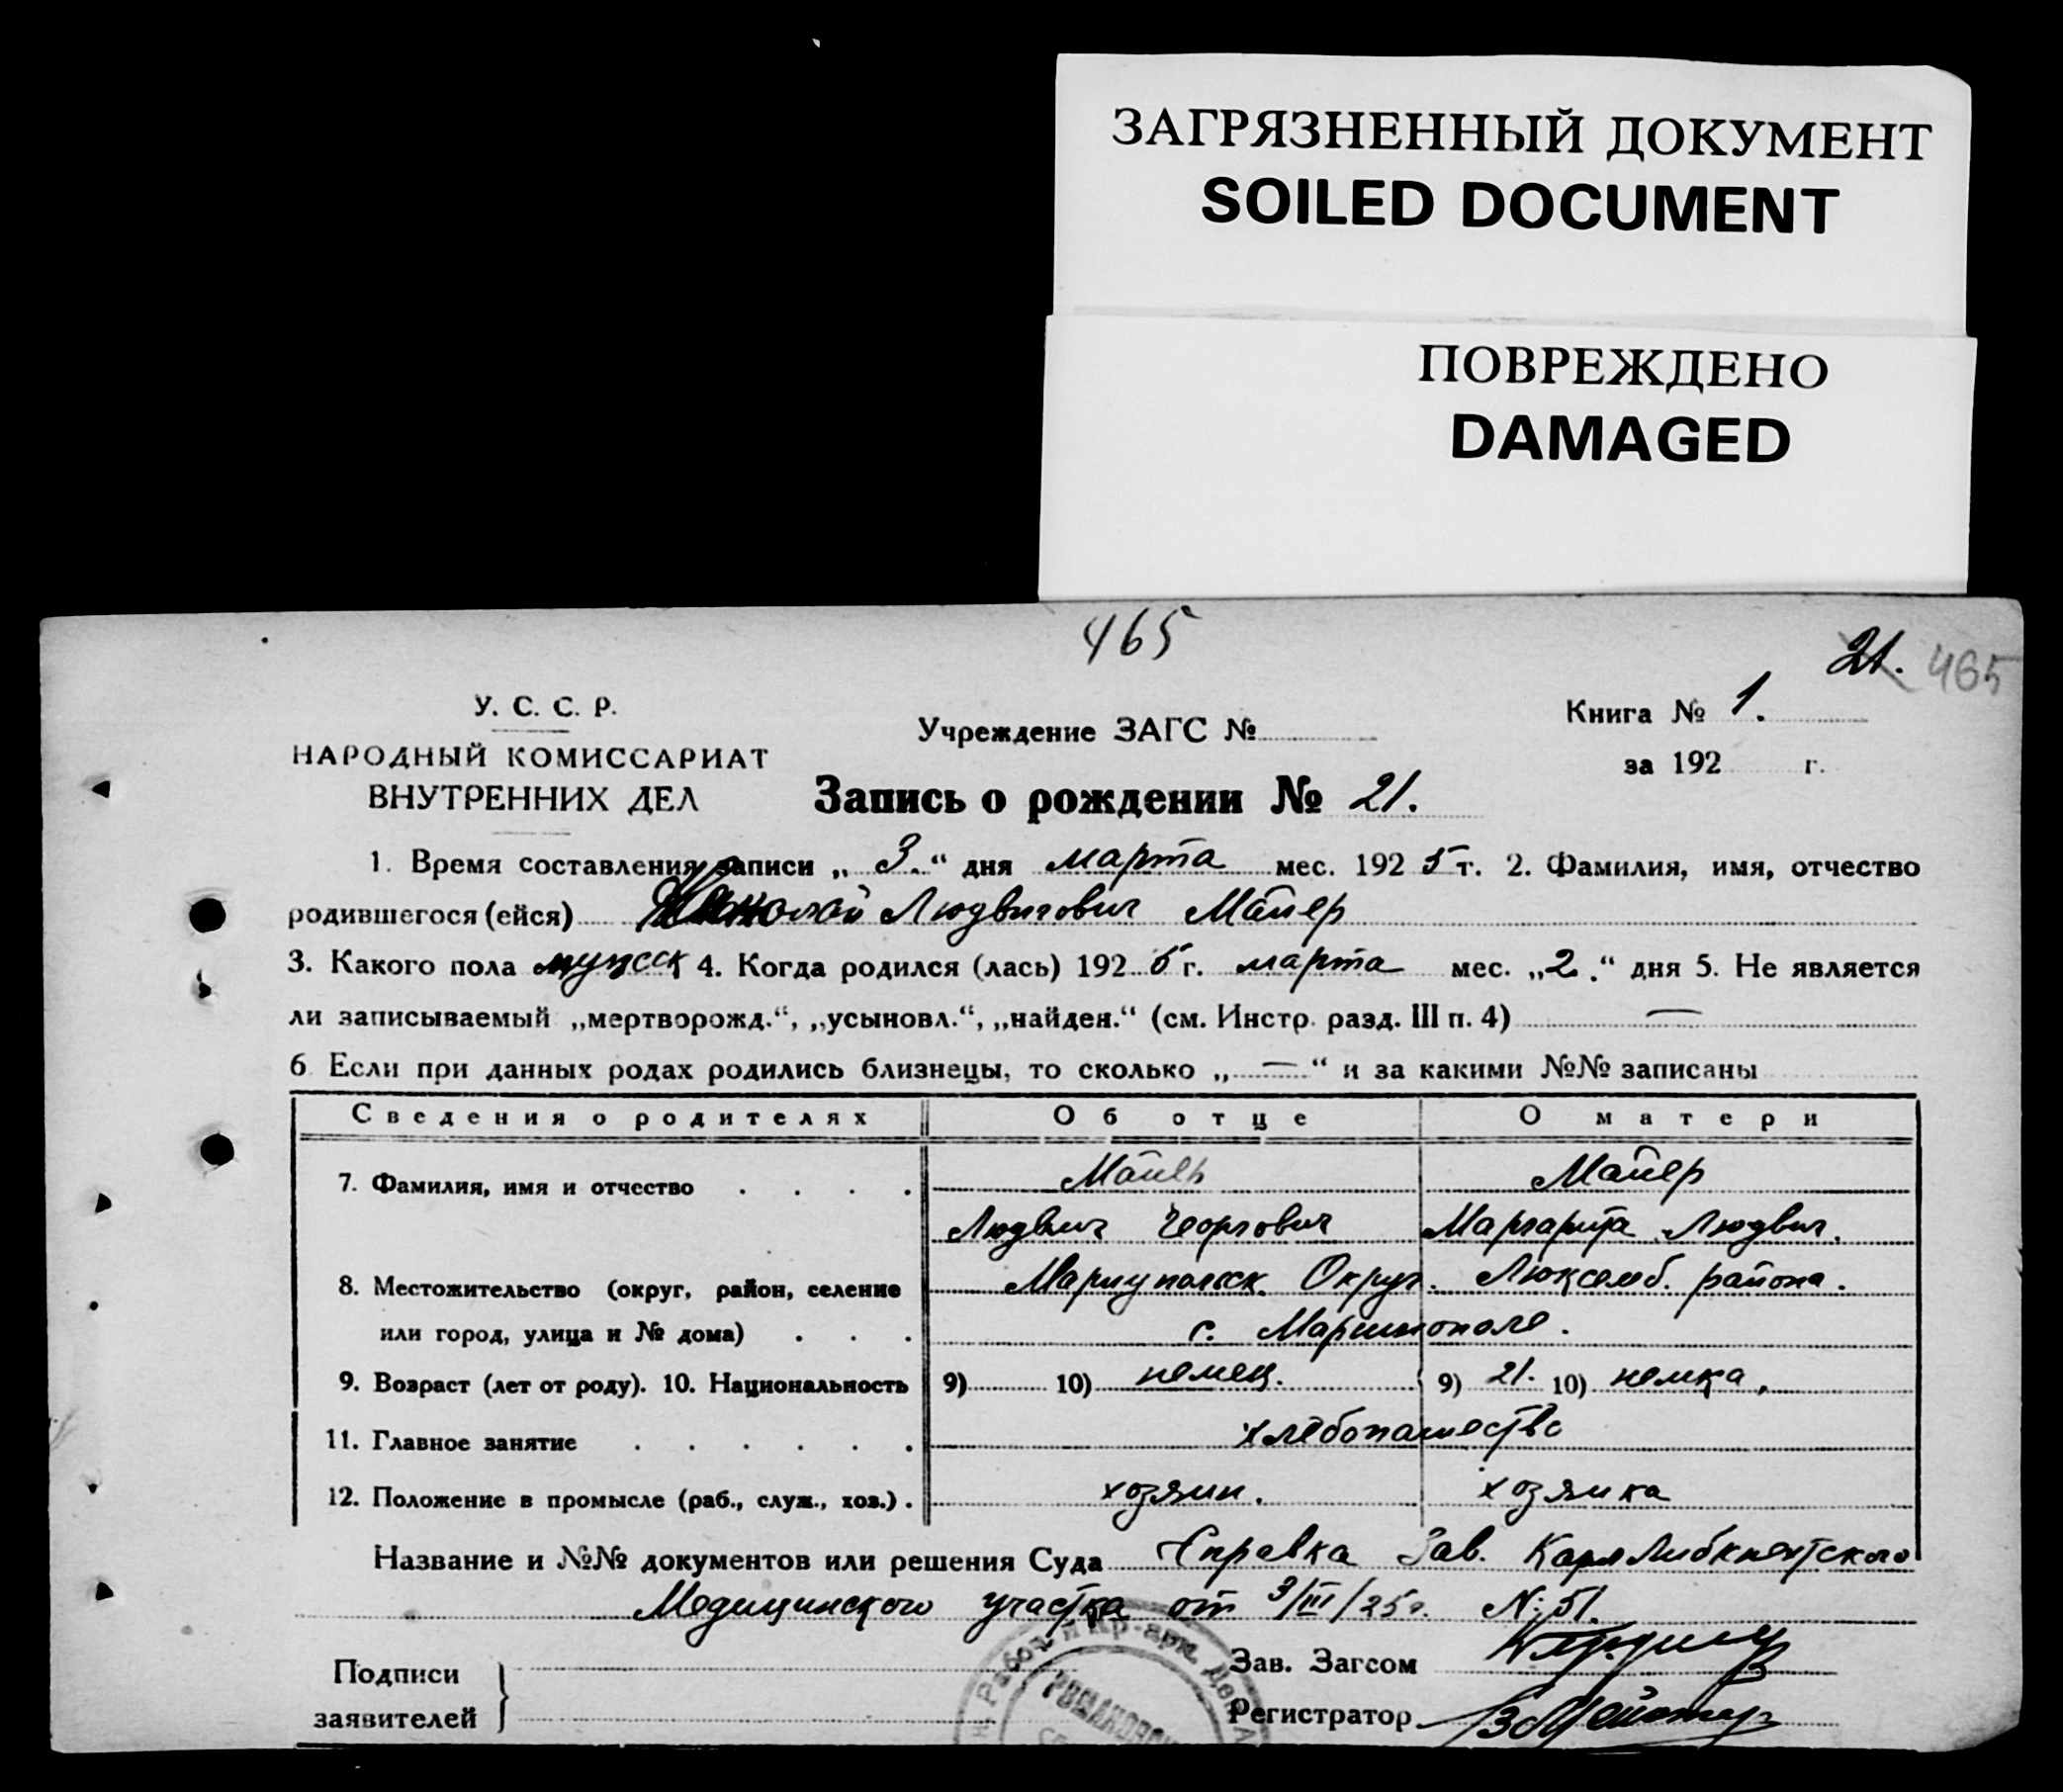 ЗАГРЯЗНЕННЫЙ ДОКУМЕНТ
SOILED DOCUMENT
ПОВРЕЖДЕНО
DAMAGED
465
21. 465
У. С. С. Р.
НАРОДНЫЙ КОМИССАРИАТ
ВНУТРЕННИХ ДЕЛ
Учреждение ЗАГС №
Книга № 1.
за 192 г.
Запись о рождении № 21.
1. Время составления записи „ 3. “ дня марта мес. 192 5 г. 2. Фамилия, имя, отчество
родившегося (ейся) Николай Людвигович Майер
3. Какого пола мужск 4. Когда родился (лась) 192 5 г. марта мес. „ 2. “ дня 5. Не является
ли записываемый „мертворожд.“, „усыновл.“, „найден.“ (см. Инстр. разд. III п. 4) —
6 Если при данных родах родились близнецы, то сколько „ — “ и за какими №№ записаны
Сведения о родителях Об отце О матери
7. Фамилия, имя и отчество Майер Майер
Людвиг Георгович Маргарита Людвиг.
8. Местожительство (округ, район, селение Мариупольск. Округ. Люксемб. района.
или город, улица и № дома) с. Мариенополе.
9. Возраст (лет от роду). 10. Национальность 9) 10) немец. 9) 21. 10) немка,
11. Главное занятие хлебопашество
12. Положение в промысле (раб., служ., хоз.) хозяин. хозяйка
Название и №№ документов или решения Суда Справка Зав. Карл Либкнехтского
Медицинского участка от 3/III/25г. №: 51.
Подписи
заявителей
Зав. Загсом
Регистратор